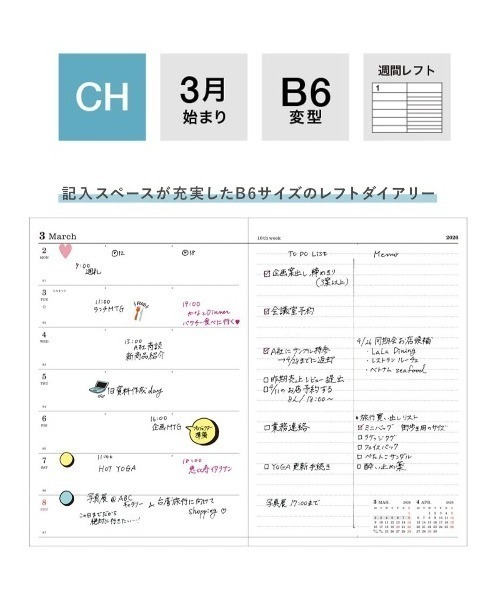 CH
3月
始まり
B6
変型
週間レフト
1
記入スペースが充実したB6サイズのレフトダイアリー
3 March
2
MON
12
18
9:00
週礼
3
TUE
11:00
ランチMTG
19:00
Dinner
パクチー食べに行く♥
4
WED
13:00
A社商談
新商品紹介
5
THU
1日資料作成day
6
FRI
16:00
企画MTG
準備
7
SAT
11:00
HOT YOGA
18:00
恵比寿イタリアン
8
SUN
写真展@ABC
ギャラリー
絶対に行きたい…!
& 台湾旅行に向けて
shopping
10th week
2026
TO DO LIST
Memo
企画案出し、締め切り
(3案以上)
会議室予約
A社にサンプル持参
昨期売上レビュー提出
のお店予約する
8人/18:00〜
業務連絡
YOGA更新手続き
写真展 17:00まで
9/26 同期会お店候補
・LaLa Dining
・レストランルーチェ
・ベトナムseafood
旅行買い出しリスト
ミニバッグ 街歩き用のサイズ
ぺたんこサンダル
酔い止め薬
3 MAR. 2026
4 APR. 2026